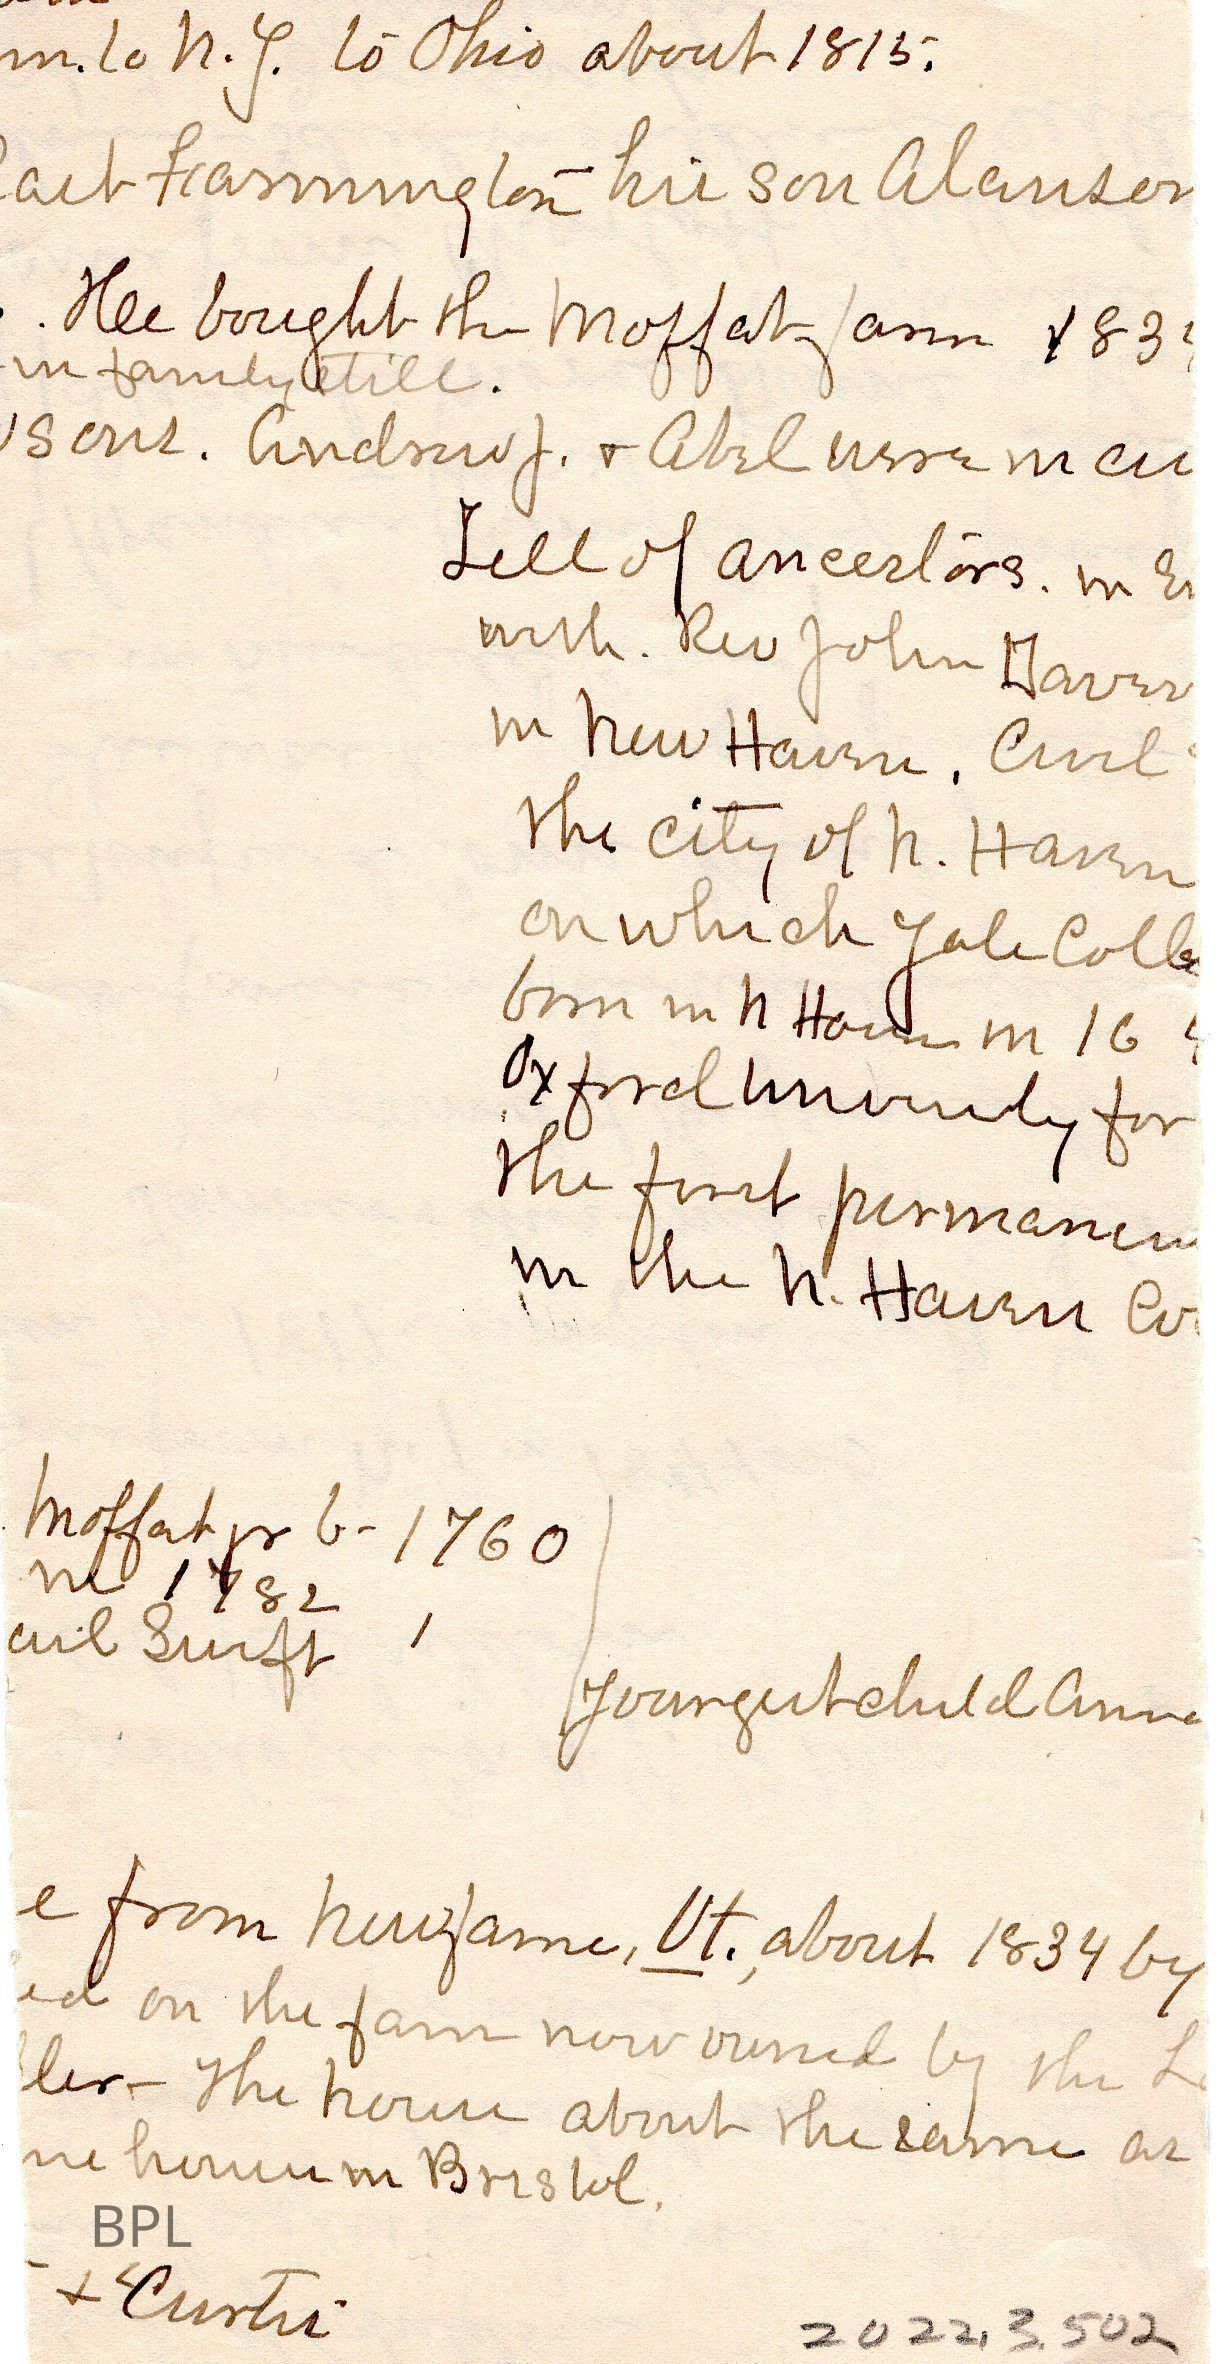 m. to N.Y. to Ohio about 1815.
East Farmington his son Alanson
. He bought the Moffat farm 183
in family still.
sons. Andrew J. + Abel were
Tell of ancestors. in
with. Rev John Daven
in New Haven. Civil
the city of N. Haven
on which Yale Colle
born in N Haven in 16
Oxford University for
the first permanen
in the N. Haven Co
Moffat jr b- 1760
m 1782
Swift
Youngest child Anna
e from Newfane, Vt., about 1834 by
ed on the farm now owned by the
ler- The house about the same as
ne house in Bristol.
BPL
+ Curtis
2022.3.502